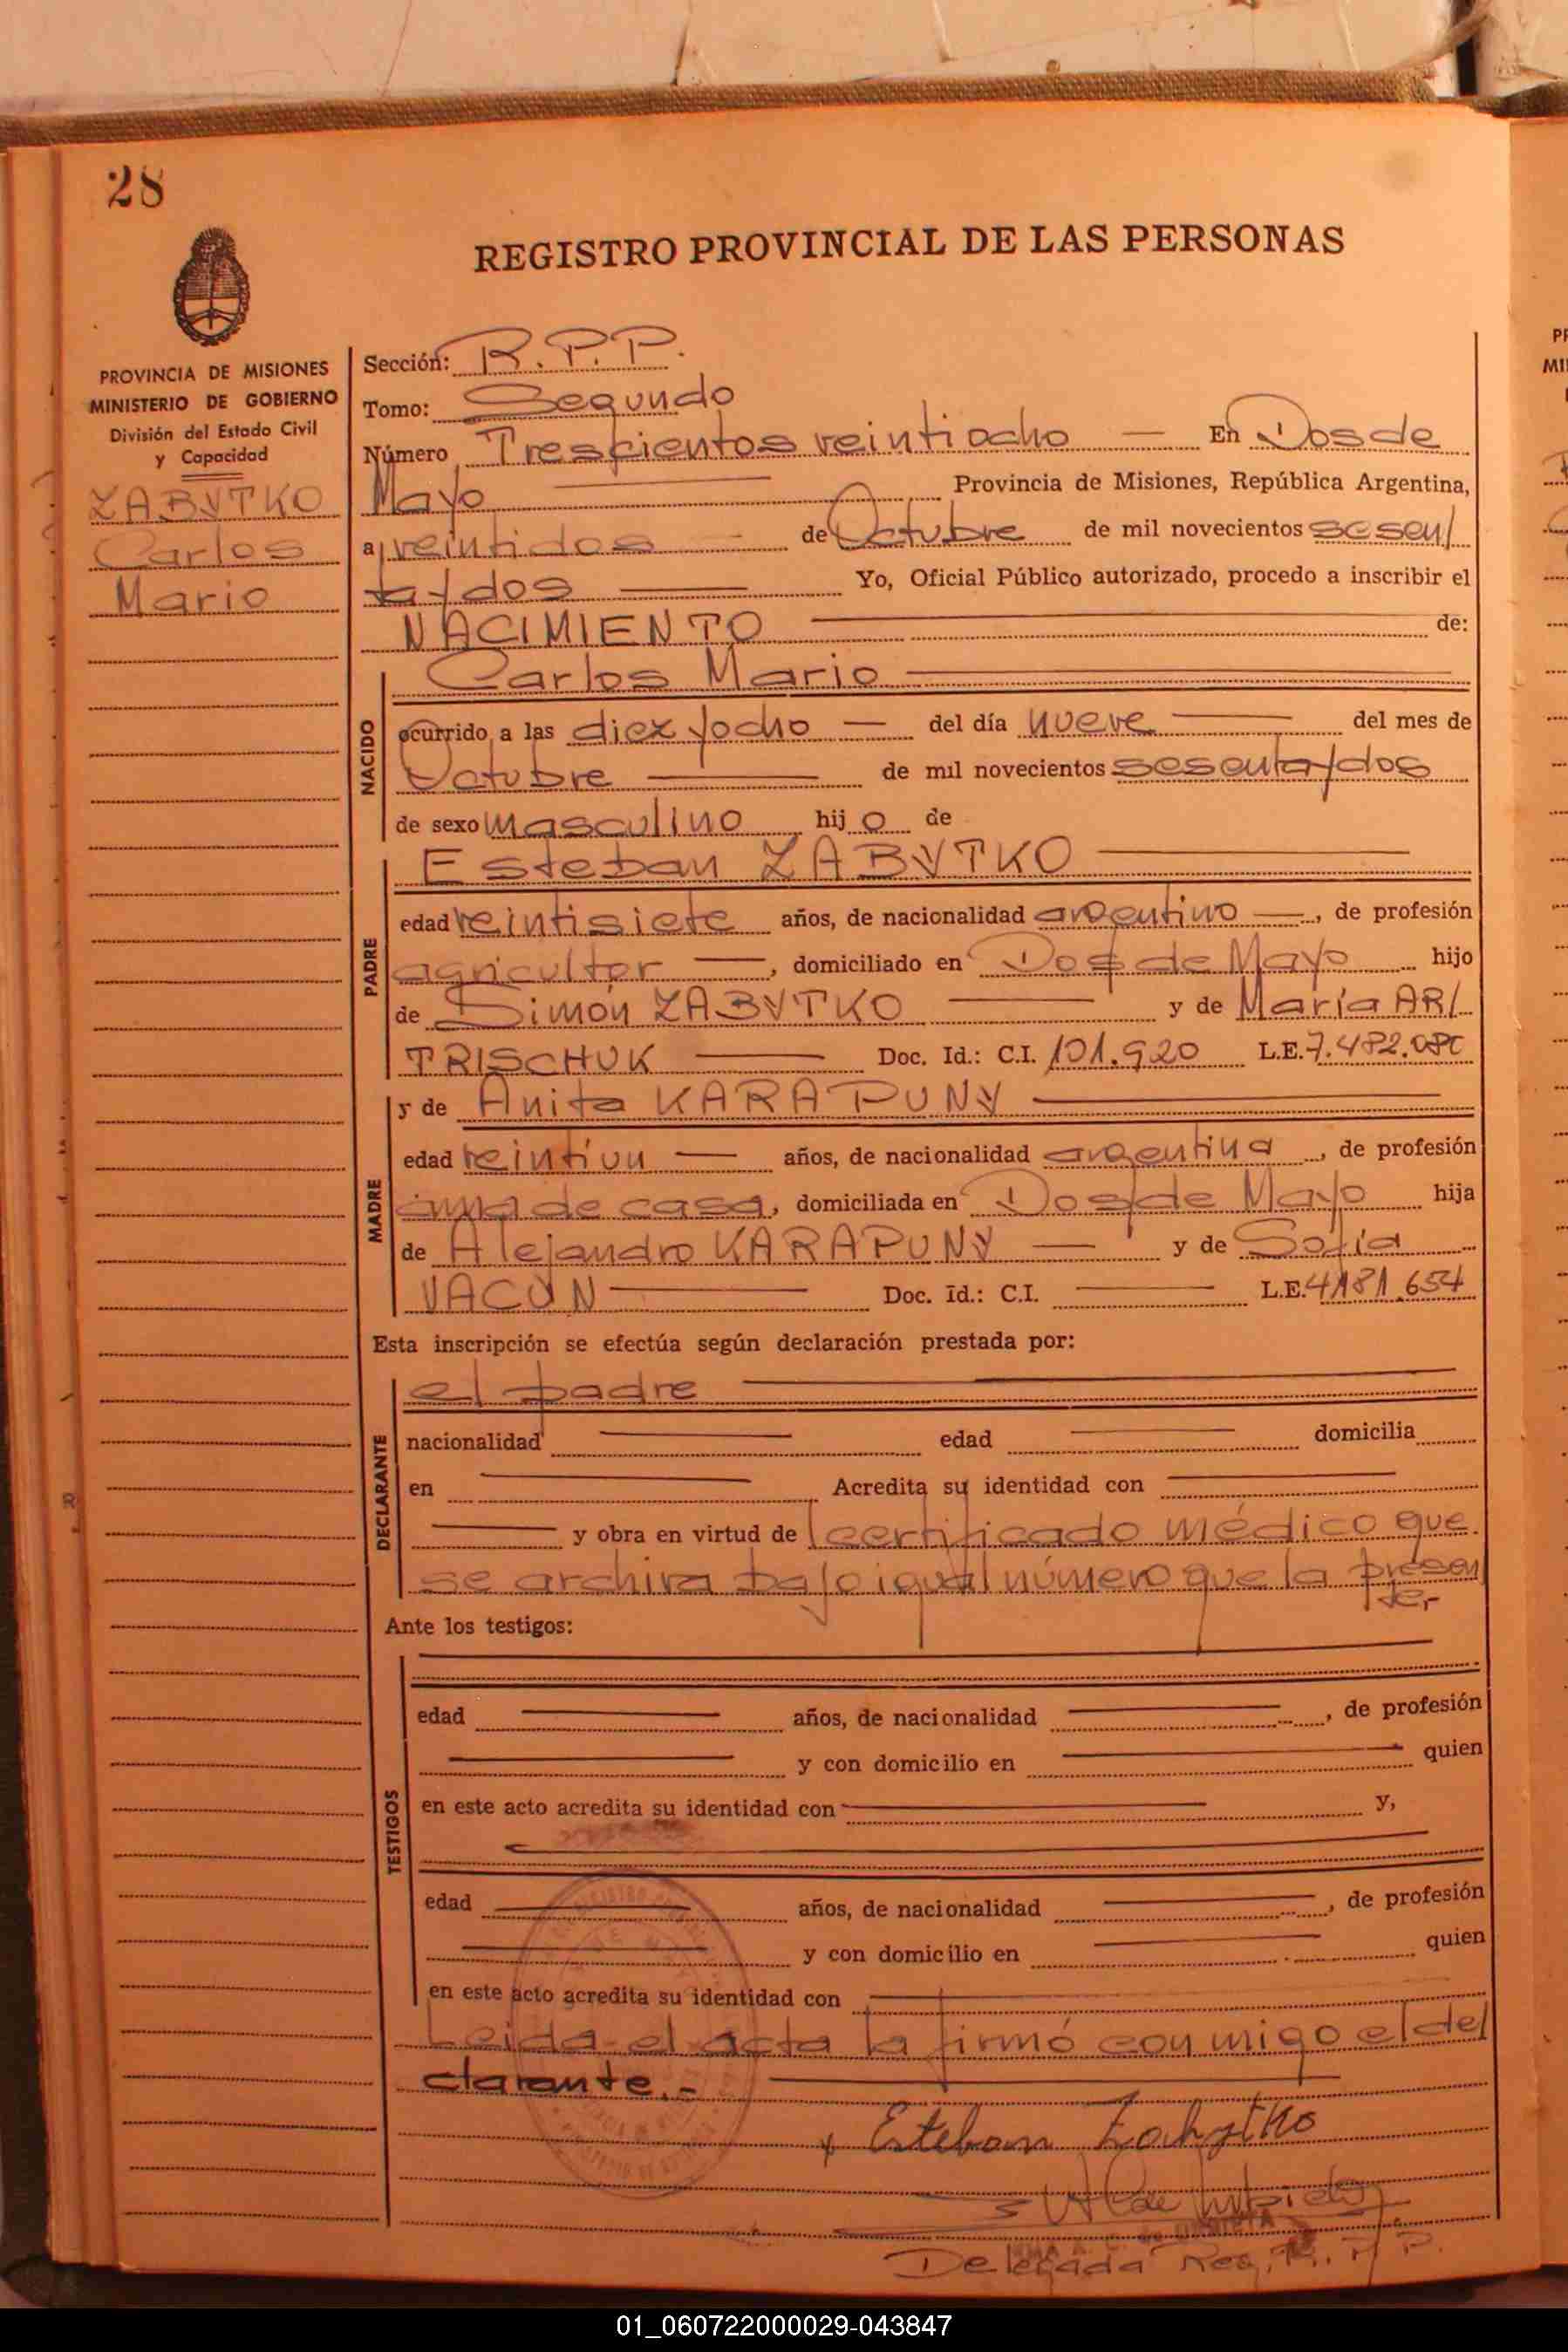 28
REGISTRO PROVINCIAL DE LAS PERSONAS
PROVINCIA DE MISIONES
MINISTERIO DE GOBIERNO
División del Estado Civil
y Capacidad
ZABYTKO
Carlos
Mario
Sección: R.P.P.
Tomo: Segundo
Número Trescientos veintiocho — En Dos de
Mayo — Provincia de Misiones, República Argentina,
a veintidos — de Octubre de mil novecientos sesen/
ta y dos — Yo, Oficial Público autorizado, procedo a inscribir el
NACIMIENTO — de:
NACIDO
Carlos Mario —
ocurrido a las diez y ocho — del día nueve — del mes de
Octubre — de mil novecientos sesenta y dos
de sexo masculino hijo de
PADRE
Esteban ZABYTKO —
edad veintisiete años, de nacionalidad argentino —, de profesión
agricultor —, domiciliado en Dos de Mayo hijo
de Simón ZABYTKO — y de María AR/
TRISCHUK — Doc. Id.: C.I. 101.920 L.E. 7.482.080
MADRE
y de Anita KARAPUNY —
edad veintiun — años, de nacionalidad argentina, de profesión
ama de casa, domiciliada en Dos de Mayo hija
de Alejandro KARAPUNY — y de Sofía
VACUN — Doc. Id.: C.I. — L.E. 4181.654
Esta inscripción se efectúa según declaración prestada por:
DECLARANTE
el padre —
nacionalidad — edad — domicilia
en — Acredita su identidad con —
— y obra en virtud de certificado médico que
se archiva bajo igual número que la presen
te,-
Ante los testigos:
TESTIGOS
edad — años, de nacionalidad —, de profesión
— y con domicilio en — quien
en este acto acredita su identidad con — y,
edad — años, de nacionalidad —, de profesión
— y con domicilio en — quien
en este acto acredita su identidad con —
Leida el acta la firmó con migo el de/
clarante.- —
x Esteban Zabytko
Delegada Reg. P. P.
01_060722000029-043847